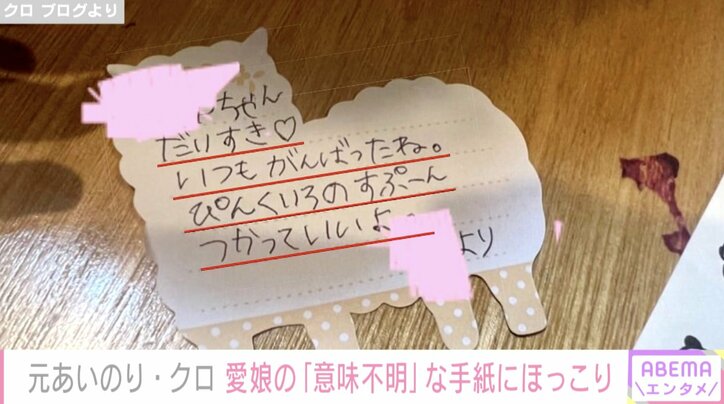 クロ ブログより
ちゃん
だいすき♡
いつもがんばったね。
ぴんくいろのすぷーん
つかっていいよ
より
元あいのり・クロ 愛娘の「意味不明」な手紙にほっこり
ABEMA
エンタメ